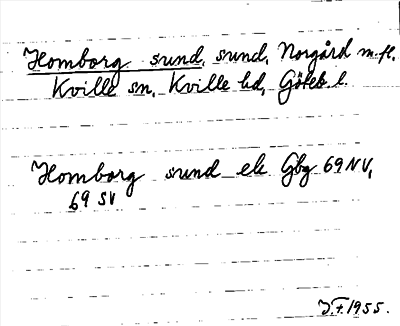 Homborg sund, sund, Norgård m.fl.
Kville sn, Kville hd, Göteb. l.
Homborg sund ek Gbg 69 NV,
69 SV
J.F. 1955.